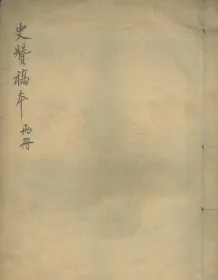 史贊稿本 兩冊